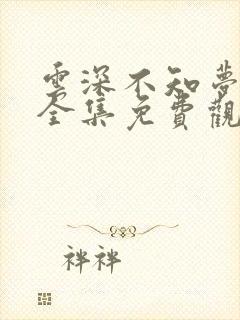 雲深不知夢
全集免費觀
袢袢